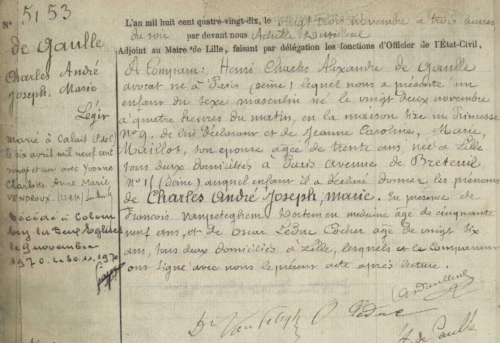 N° 5153
de Gaulle
Charles André
Joseph Marie
Légit
Marié à Calais P.deC.
le six avril mil neuf cent
vingt et un avec Yvonne
Charlotte Anne Marie
VENDROUX
Décédé à Colom
bey les Deux Eglises
le 9 novembre
1970
L'an mil huit cent quatre-vingt-dix, le vingt deux novembre à trois heures
du soir par devant nous Achille
Adjoint au Maire de Lille, faisant par délégation les fonctions d'Officier de l'État-Civil,
a Comparu : Henri Charles Alexandre de Gaulle
avocat né à Paris (Seine) lequel nous a présenté un
enfant du sexe masculin né le vingt deux novembre
à quatre heures du matin, en la maison sise rue Princesse
N° 9, de lui déclarant et de Jeanne Caroline, Marie,
Maillot, son épouse âgée de trente ans, née à Lille
tous deux domiciliés à Paris avenue de Breteuil
N° 15 (Seine) auquel enfant il a déclaré donner les prénoms
de Charles André Joseph, Marie. En présence de
François Docteur en médecine âgé de cinquante
neuf ans, et de Oscar Leduc Cocher âgé de vingt six
ans, tous deux domiciliés à Lille, lesquels et le Comparant
ont signé avec nous le présent acte après lecture.
O Leduc
de Gaulle